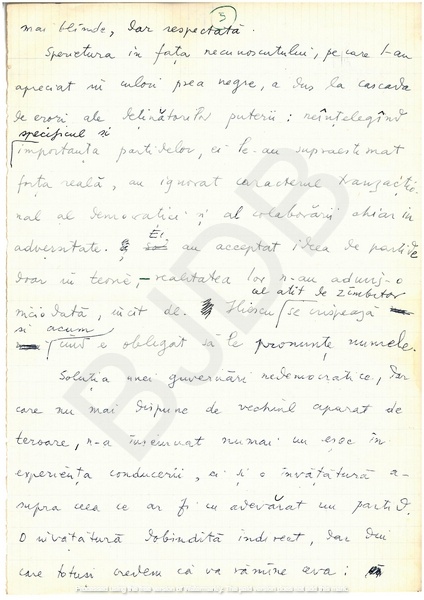 5
mai blînde, dar respectată.
Sperietura în fața necunoscutului, pe care l-au
apreciat în culori prea negre, a dus la cascada
de erori ale deținătorilor puterii: neînțelegînd
specificul și
importanța partidelor, ei le-au supraestimat
forța reală, au ignorat caracterul tranzacțio-
nal al democratiei și al colaborării chiar în
adversitate. Ei au acceptat ideea de partide
doar în teorie, – realitatea lor n-au admis-o
niciodată, încît dl. Iliescu se crispează
al atît de zîmbitor
și acum cînd e obligat să le pronunțe numele.
Soluția unei guvernări nedemocratice, dar
care nu mai dispune de vechiul aparat de
teroare, n-a însemnat numai un eșec în
experiența conducerii, ci și o învățătură a-
supra ceea ce ar fi cu adevărat un partid.
O învățătură dobîndită indirect, dar din
care totuși credem că va rămîne ceva:
BJDB